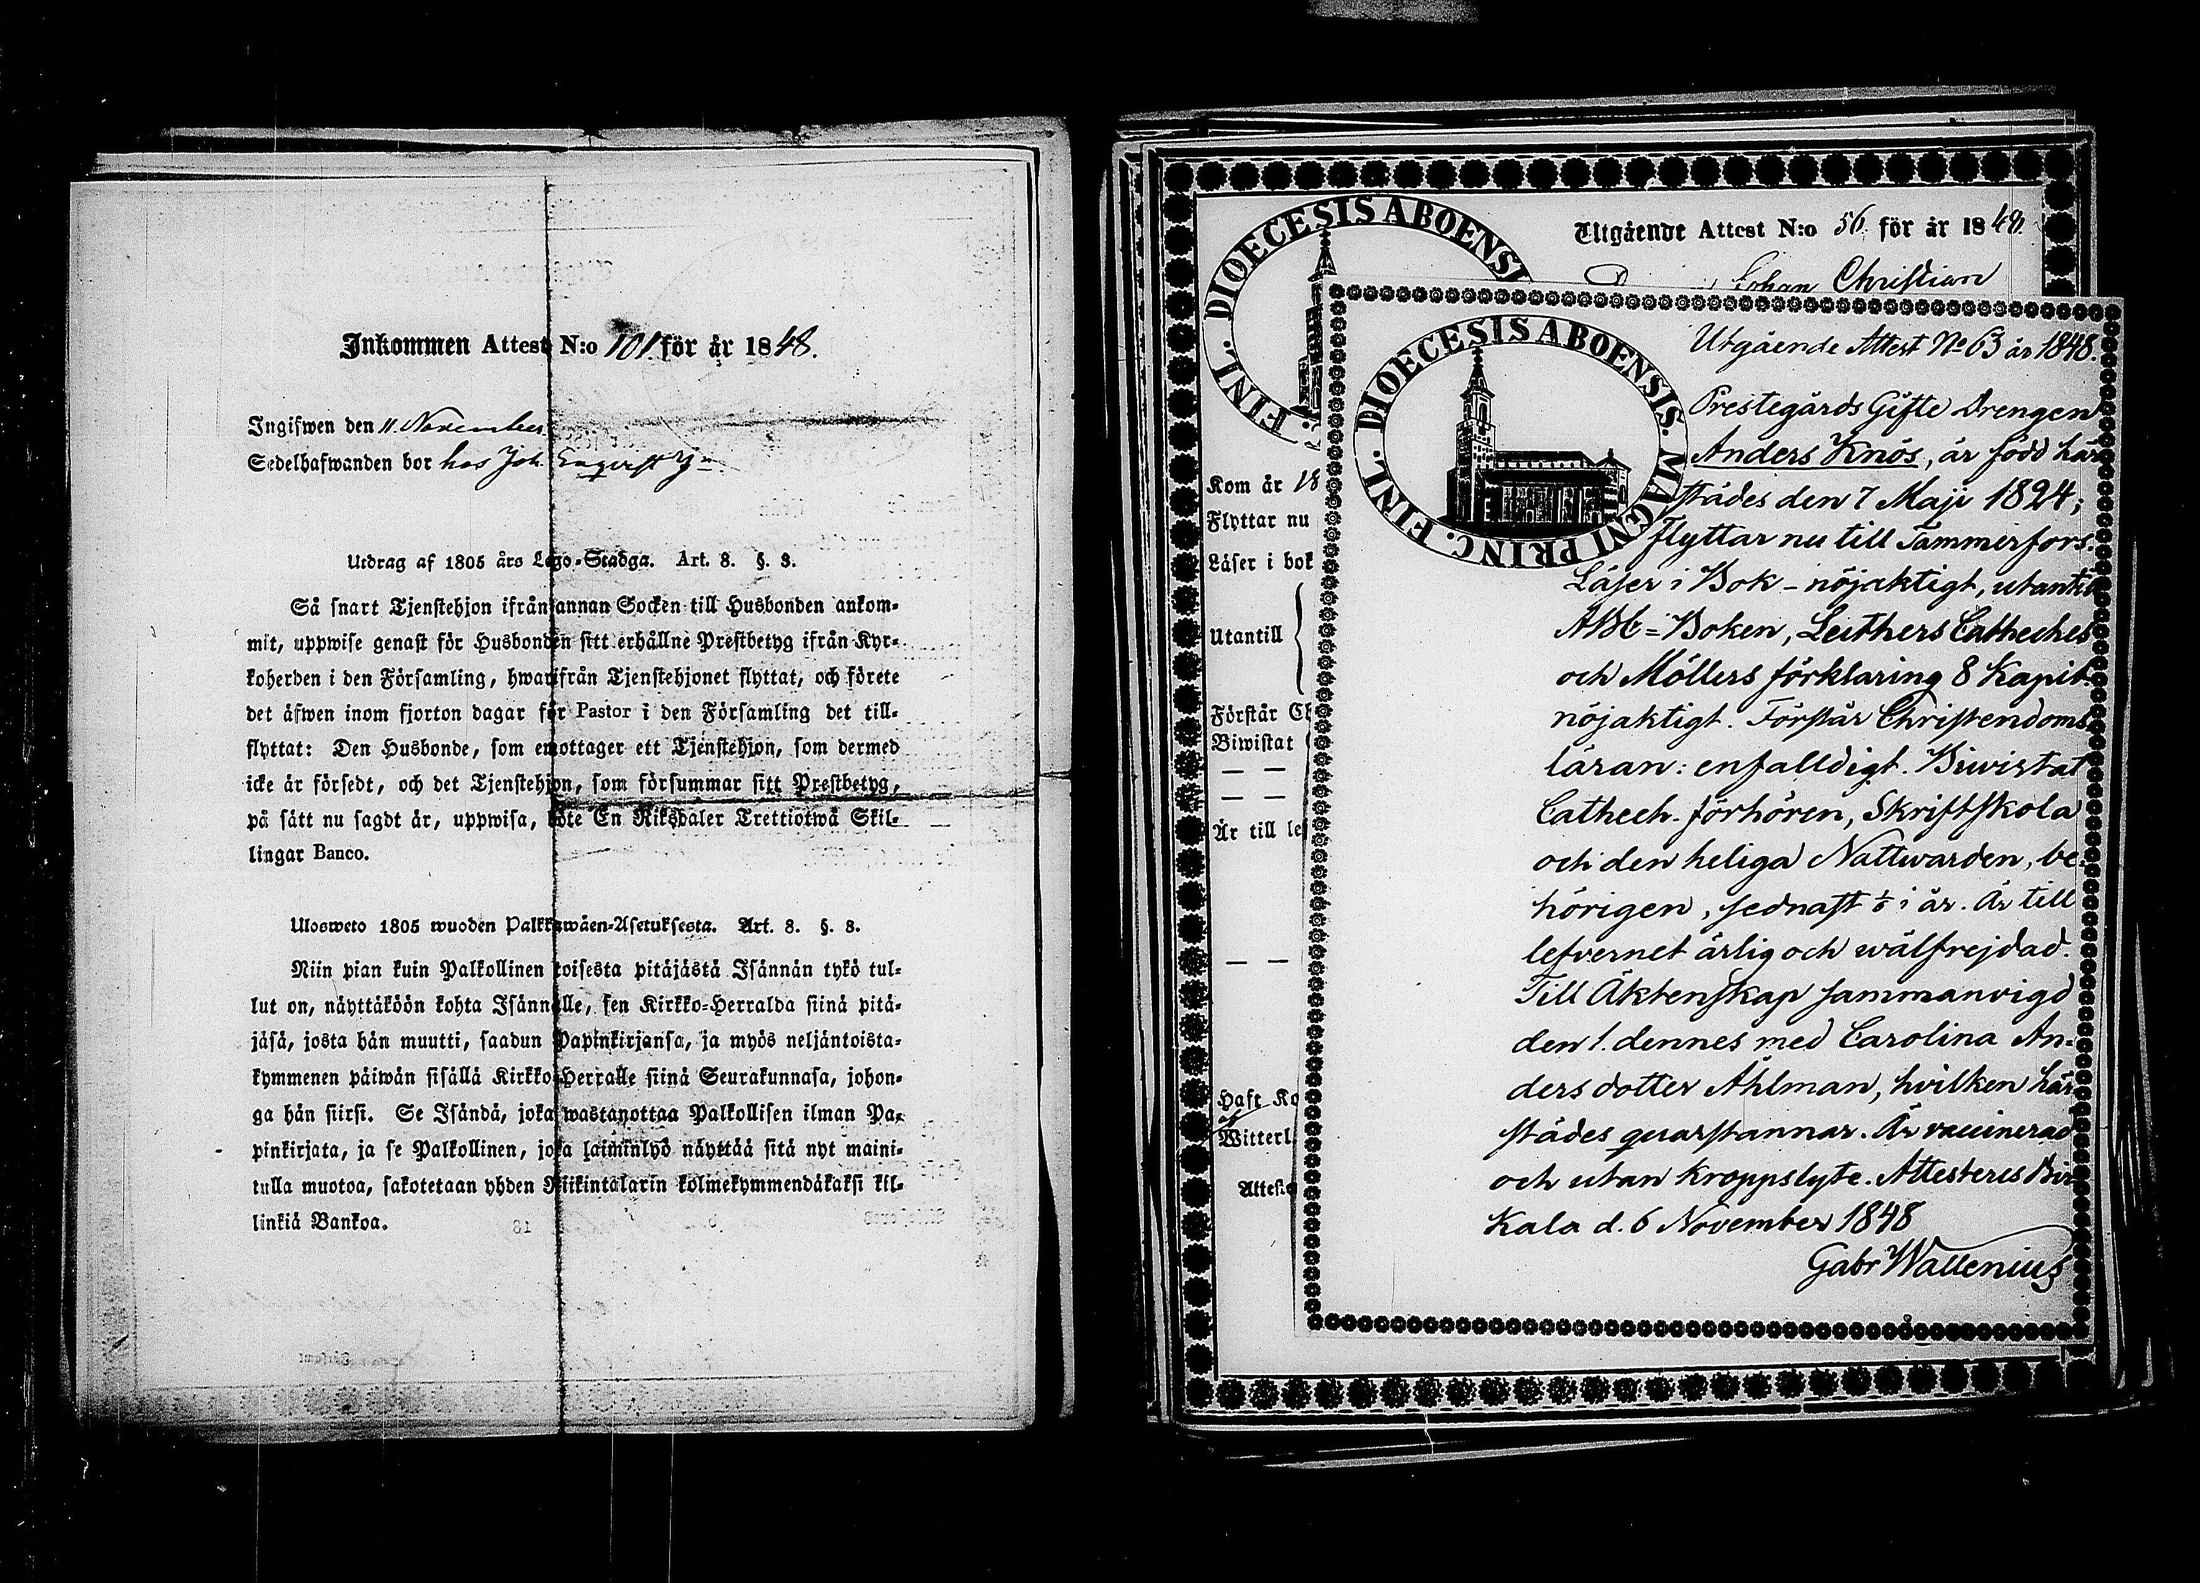 Inkommen Attest N:o 101 för år 1848.
Ingifwen den 11 November
Sedelhafwanden bor hos Joh.
Utdrag af 1805 års Lego-Stadga. Art. 8. §. 8.
Så snart Tjenstehjon ifrån annan Socken till Husbonden ankom-
mit, uppwise genast för Husbonden sitt erhållne Prestbetyg ifrån Kyr-
koherden i den Församling, hwarifrån Tjenstehjonet flyttat, och förete
det äfwen inom fjorton dagar för Pastor i den Församling det till-
flyttat: Den Husbonde, som emottager ett Tjenstehjon, som dermed
icke är försedt, och det Tjenstehjon, som försummar sitt Prestbetyg,
på sätt nu sagdt är, uppwisa, böte En Riksdaler Trettiotwå Skil-
lingar Banco.
Ulosweto 1805 wuoden Palkkawäen-Asetuksesta. Art. 8. §. 8.
Niin pian kuin Palkollinen toisesta pitäjästä Isännän tykö tul-
lut on, näyttäköön kohta Isännälle, sen Kirkko-Herralda siinä pitä-
jäsä, josta hän muutti, saadun Papinkirjansa, ja myös neljäntoista-
kymmenen päiwän sisällä Kirkko-Herralle siinä Seurakunnasa, johon-
ga hän siirsi. Se Isändä, joka wastanottaa Palkollisen ilman Pa-
pinkirjata, ja se Palkollinen, joka laiminlyö näyttää sitä nyt maini-
tulla muotoa, sakotetaan yhden Riikintalarin kolmekymmendäkaksi kil-
linkiä Bankoa.
Utgående Attest N:o 56 för år 1848.
Johan Christian
DIOECESIS ABOENSI
FINL.
Kom år 18
Flyttar nu
Läser i bok
Utantill
Förstår Ch
Biwistat
Är till lef
Haft Ko
Witterl.
Attest
DIOECESIS ABOENSIS. MAGNI PRINC. FINL.
Utgående Attest No 63 år 1848.
Prestegårds Gifte Drengen
Anders Knös, är född här
städes den 7 Maji 1824;
flyttar nu till Tammerfors.
Läser i Bok - nöjaktigt, utantill
ABC=Boken, Luthers Catheches
och Möllers förklaring 8 Kapit.
nöjaktigt. Förstår Christendoms
läran: enfalldigt. Biwistat
Cathech. förhören, Skriftskola
och den heliga Nattwarden, be-
hörigen, sednast i år. Är till
lefvernet ärlig och wälfrejdad.
Till Äktenskap sammanvigd
den 1. dennes med Carolina An-
dersdotter Åhlman, hvilken här
städes quarstannar. Är vaccinerad
och utan kroppslyte. Attesteres Bir
kala d. 6 November 1848
Gabr Wallenius